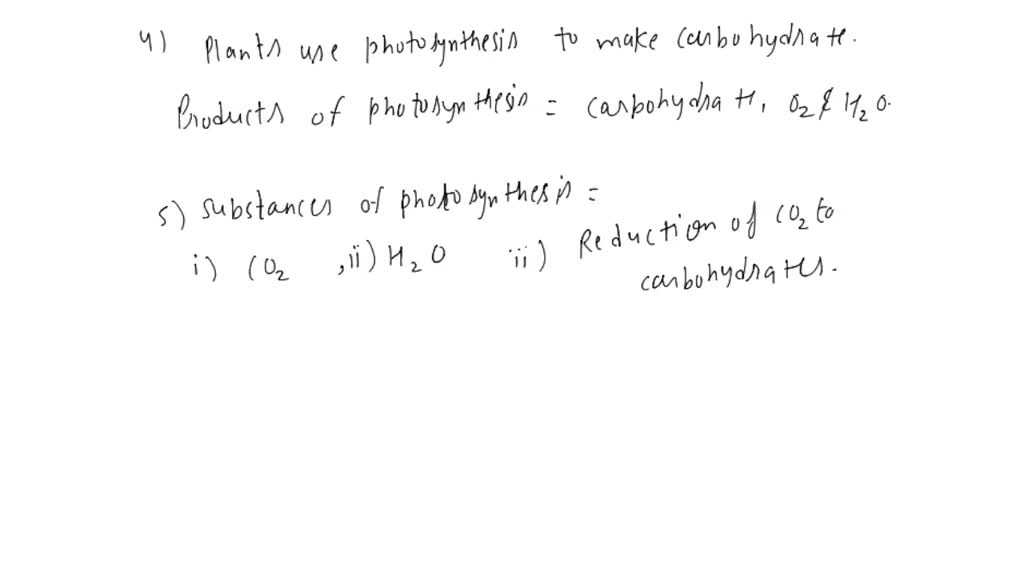 4) Plants use photosynthesis to make carbohydrate.
Products of photosynthesis = carbohydrate, O2 & H2O.
5) substances of photosynthesis =
i) CO2 , ii) H2O iii) Reduction of CO2 to
carbohydrates.